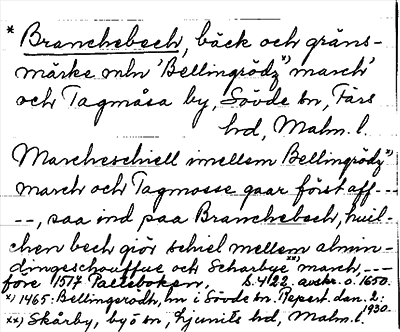 * Branchebech, bäck och gräns-
märke mln 'Bellingrödz x) march'
och Tagmåsa by, Sövde sn, Färs
hd, Malm. l.
Marcheschiell imellem Bellingrödz x)
march och Tagmosse gaar först aff - -
- -, saa ind paa Branchebech, huil-
chen bech giör schiel mellem almin-
dingeschouffue och Scharbye xx) march, - - -
före 1577 Palteboken. S. 4122 avskr. o. 1650.
x) 1465: Bellingerödh, hn i Sövde sn. Repert. dan. 2:
1930.
xx) Skårby, by o sn, Ljunits hd, Malm. l.